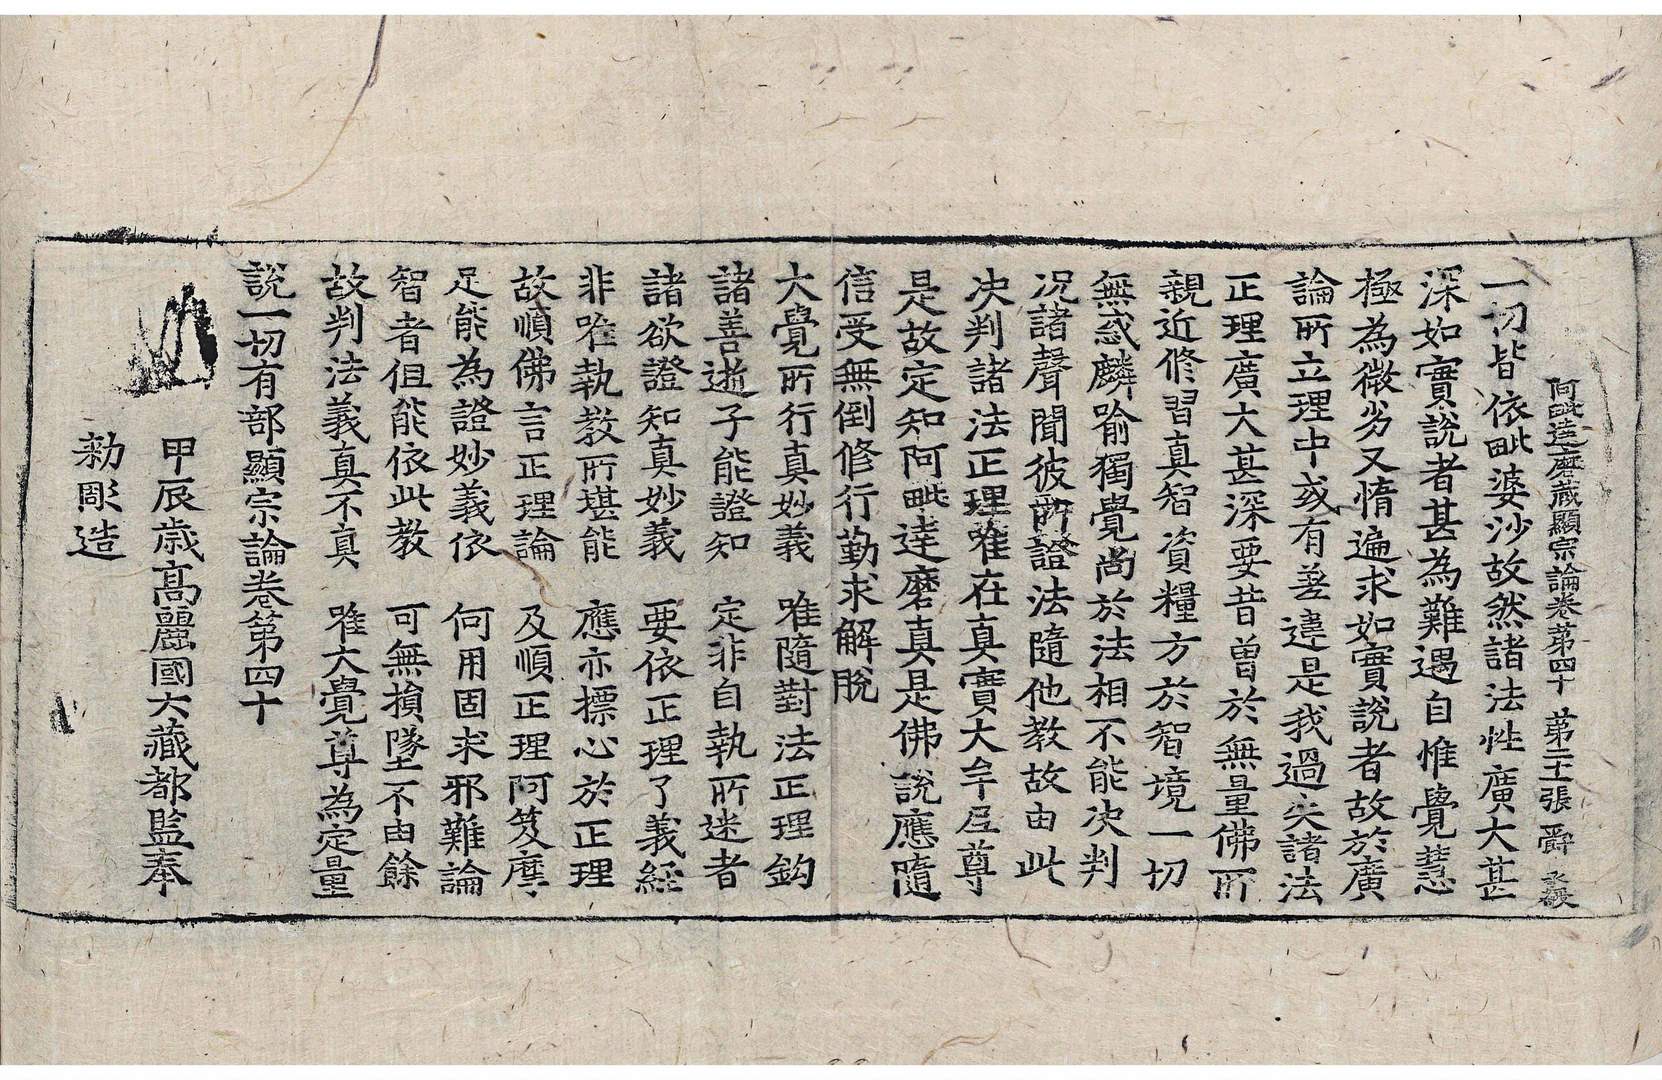 阿毗達磨藏顯宗論卷第四十 第二十張 辭
一切皆依毗婆沙故然諸法性廣大甚
深如實說者甚為難遇自惟覺慧
極為微劣又惰遍求如實說者故於廣
論所立理中或有差違是我過失諸法
正理廣大甚深要昔曾於無量佛所
親近修習真智資糧方於智境一切
無惑麟喻獨覺尚於法相不能決判
況諸聲聞彼所證法隨他教故由此
決判諸法正理唯在真實大牟尼尊
是故定知阿毗達磨真是佛說應隨
信受無倒修行勤求解脫
大覺所行真妙義 唯隨對法正理鈎
諸善逝子能證知 定非自執所迷者
諸欲證知真妙義 要依正理了義經
非唯執教所堪能 應亦摽心於正理
故順佛言正理論 及順正理阿笈摩
足能為證妙義依 何用固求邪難論
智者但能依此教 可無損墜不由餘
故判法義真不真 唯大覺尊為定量
說一切有部顯宗論卷第四十
甲辰歲高麗國大藏都監奉
勑彫造